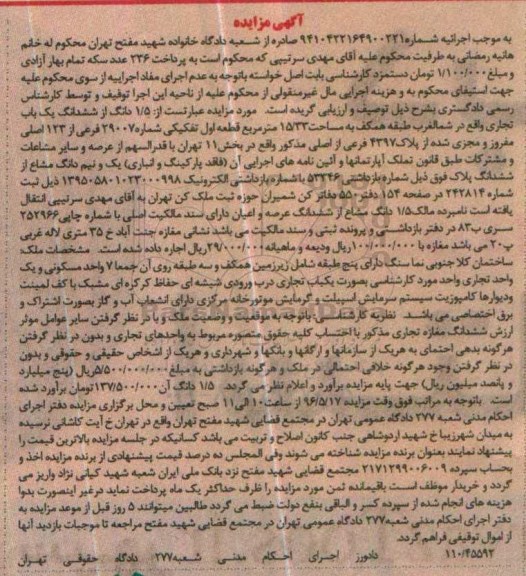 آگهی مزایده
به موجب اجرائیه شماره ۹۴۱۰۴۲۲۱۶۴۹۰۰۲۲۱ صادره از شعبه دادگاه خانواده شهید مفتح تهران محکوم له خانم
هانیه رمضانی به طرفیت محکوم علیه آقای مهدی سرتیپی که محکوم است به پرداخت ۲۳۶ عدد سکه تمام بهار آزادی
و مبلغ ۱/۱۰۰/۰۰۰ تومان دستمزد کارشناسی بابت اصل خواسته باتوجه به عدم اجرای مفاد اجراییه از سوی محکوم علیه
جهت استیفای محکوم به و هزینه اجرایی مال غیرمنقولی از محکوم علیه از ناحیه این اجرا توقیف و توسط کارشناس
رسمی دادگستری بشرح ذیل توصیف و ارزیابی گریده است. مورد مزایده عبارتست از: ۱/۵ دانگ از ششدانگ یک باب
تجاری واقع در شمالغرب طبقه همکف به مساحت ۱۵/۳۳ مترمربع قطعه اول تفکیکی شماره ۲۹۰۰۷ فرعی از ۱۲۳ اصلی
مفروز و مجزی شده از پلاک ۴۳۹۷ فرعی از اصلی مذکور واقع در بخش ۱۱ تهران با قدرالسهم از عرصه و سایر مشاعات
و مشترکات طبق قانون تملک آپارتمانها و آئین نامه های اجرایی آن (فاقد پارکینگ و انباری) یک و نیم دانگ مشاع از
ششدانگ پلاک فوق ذیل شماره بازداشتی ۵۳۳۴۶ با شماره بازداشتی الکترونیک ۱۳۹۵۰۵۸۰۱۰۲۳۰۰۰۹۹۸ ذیل ثبت
شماره ۲۴۲۸۱۴ در صفحه ۱۵۴ دفتر ۵۵۰ دفاتر کن شمیران حوزه ثبت ملک کن تهران به آقای مهدی سرتیپی انتقال
یافته است نامبرده مالک ۱/۵ دانگ مشاع از ششدانگ عرصه و اعیان دارای سند مالکیت اصلی با شماره چاپی ۲۵۲۹۶۶
سری ب ۸۳ در دفتر بازداشتی و پرونده ثبتی و سند مالکیت می باشد نشانی مغازه جنت آباد خ ۳۵ متری لاله غربی
پ ۲۰ می باشد مغازه با ۱۰۰/۰۰۰/۰۰۰ ریال ودیعه و ماهیانه ۲۹/۰۰۰/۰۰۰ ریال اجاره داده شده است. مشخصات ملک:
ساختمان کلا جنوبی نما سنگ دارای پنج طبقه شامل زیرزمین همکف و سه طبقه روی آن جمعا ۷ واحد مسکونی و یک
واحد تجاری واحد مورد کارشناسی بصورت یکباب تجاری درب ورودی شیشه ای حفاظ کرکره ای مشبک با کف لمینت
ودیوارها کامپوزیت سیستم سرمایش اسپیلت و گرمایش موتورخانه مرکزی دارای انشعاب آب و گاز بصورت اشتراک و
برق اختصاصی می باشد. نظریه کارشناسی: باتوجه به موقعیت و وضعیت ملک و با در نظر گرفتن سایر عوامل موثر
ارزش ششدانگ مغازه تجاری مذکور با احتساب کلیه حقوق متصوره مربوط به واحدهای تجاری و بدون در نظر گرفتن
هرگونه بدهی احتمای به هریک از سازمانها و ارگانها و بانکها و شهرداری و هریک از اشخاص حقیقی و حقوقی و بدون
در نظر گرفتن وجود هرگونه خلافی احتمالی در ملک و هرگونه بازداشتی به مبلغ ۵/۵۰۰/۰۰۰/۰۰۰ ریال (پنج میلیارد
و پانصد میلیون ریال) جهت پایه مزایده برآورد و اعلام نظر می گردد. ۱/۵ دانگ آن ۱۳۷/۵۰۰/۰۰۰ تومان برآورد شده
است. باتوجه به مراتب فوق وقت مزایده ۹۶/۵/۱۷ از ساعت ۱۰ الی ۱۱ صبح تعیین و محل برگزاری مزایده دفتر اجرای
احکام مدنی شعبه ۲۷۷ دادگاه عمومی تهران در مجتمع قضایی شهید مفتح تهران واقع در تهران خ آیت کاشانی نرسیده
به میدان شهرزیبا خ شهید اردوشاهی جنب کانون اصلاح و تربیت می باشد کسانیکه در جلسه مزایده بالاترین قیمت را
پیشنهاد نمایند بعنوان برنده مزایده شناخته می شوند وفی المجلس ده درصد قیمت پیشنهادی از برنده مزایده اخذ و
بحساب سپرده ۲۱۷۱۲۹۹۰۰۶۰۰۹ مجتمع قضایی شهید مفتح نزد بانک ملی ایران شعبه شهید کیانی نژاد واریز می
گردد و خریدار موظف است باقیمانده ثمن مورد مزایده را ظرف حداکثر یک ماه پرداخت نماید درغیر اینصورت بدوا
هزینه های انجام شده از سپرده کسر و الباقی بنفع دولت ضبط می گردد طالبین میتوانند ۵ روز قبل از موعد مزایده به
دفتر اجرای احکام مدنی شعبه ۲۷۷ دادگاه عمومی تهران در مجتمع قضایی شهید مفتح مراجعه تا موجبات بازدید آنها
از اموال توقیفی فراهم گردد.
۱۱۰/۴۵۵۹۲ دادورز اجرای احکام مدنی شعبه ۲۷۷ دادگاه حقوقی تهران